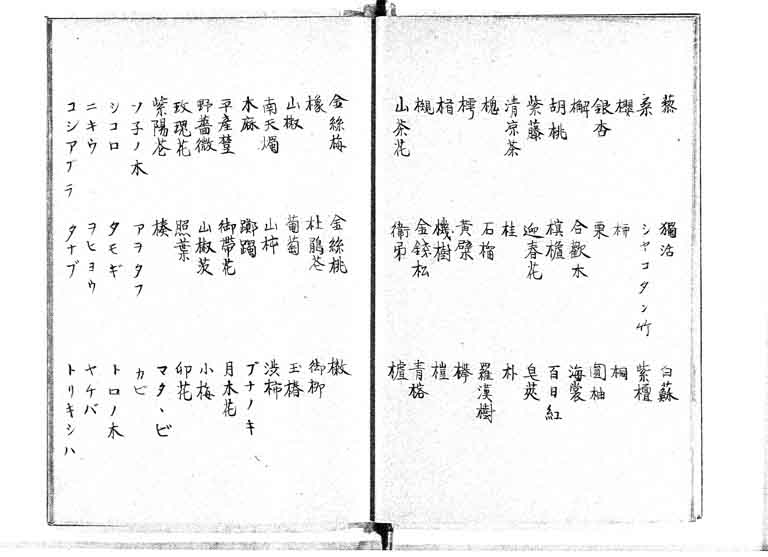 藜 獨活 白蘇
桑 シヤコタン竹 紫檀
櫻 柿 桐
銀杏 栗 圓柚
檞 合歡木 海棠
胡桃 槙櫨 百日紅
紫藤 迎春花 皂莢
清凉茶 桂 朴
槐 石榴 羅漢樹
樗 黃檗 欅
楮 機樹 榿
槻 金錢松 青榕
山茶花 衞矛 櫨
金絲梅 金絲桃
椽 杜鵑花 御柳
山椒 葡萄 玉椿
南天燭 山柿 澁柿
木麻 躑躅 ブナノキ
平産蔓 御帶花 月木花
野薔薇 山椒茨 小梅
玫瑰花 照葉 卯花
紫陽花 マタヽビ
ソ子ノ木 アヲタフ カビ
シコロ タモギ トロノ木
ニキウ ヲヒヨウ ヤケバ
コシアブラ タナブ トリキシハ